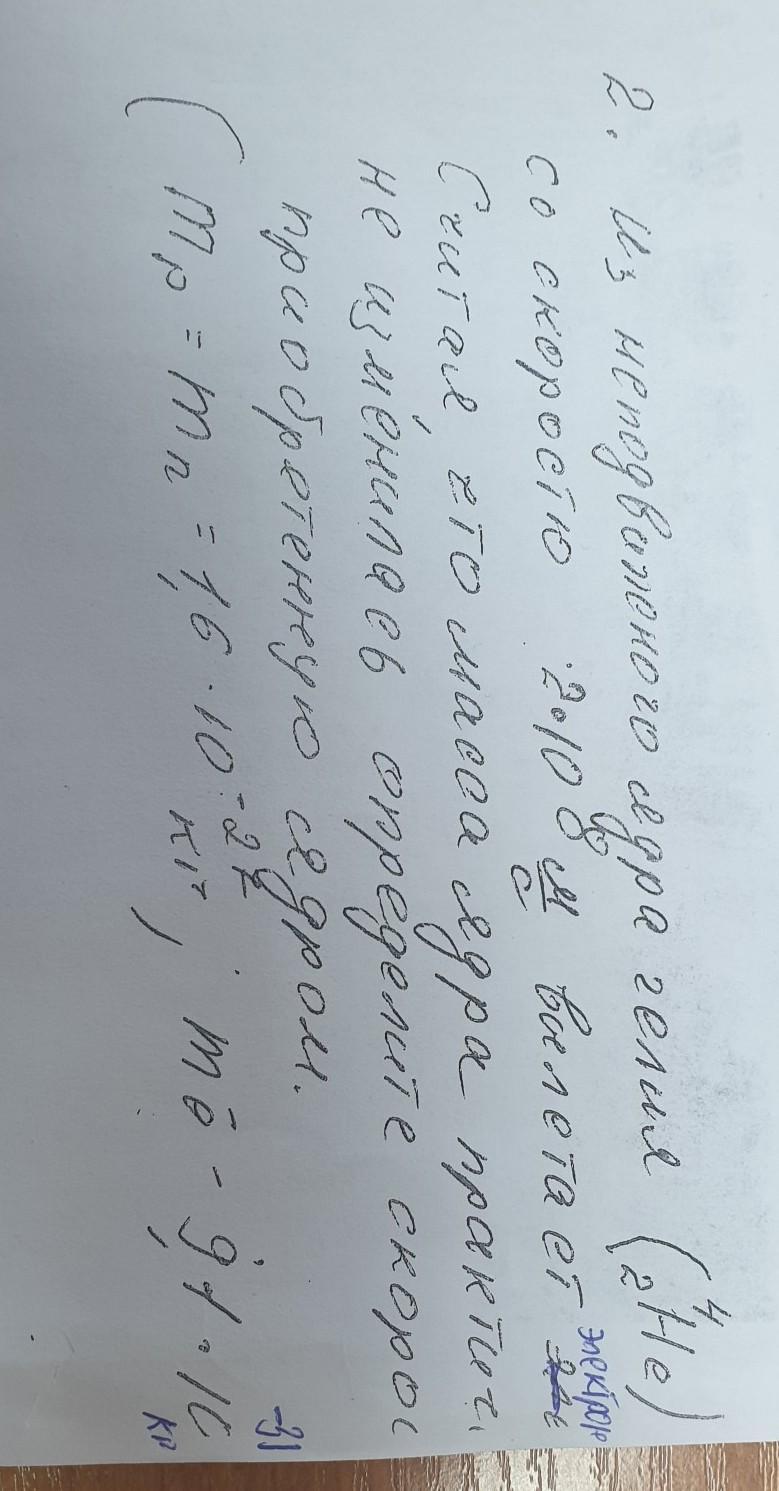 2. Из неподвижного ядра гелия (⁴₂He)
со скоростью 2·10⁸ м/с вылетает электрон
Считая что масса ядра практич
не изменилась определите скорос
приобретенную ядром.
(mp = mn = 1,6 · 10⁻²⁷ кг, mē - 9,1 · 10⁻³¹ кг